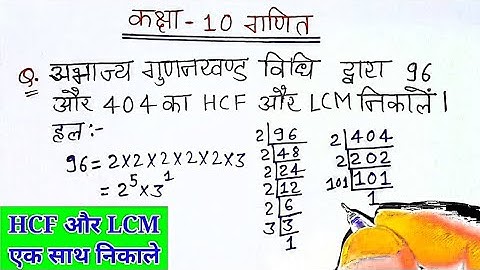 कक्षा - 10 गणित
Q. अभाज्य गुणनखण्ड विधि द्वारा 96
और 404 का HCF और LCM निकालें।
हल:-
96 = 2×2×2×2×2×3
= 2⁵×3¹
2 96
2 48
2 24
2 12
2 6
3 3
1
2 404
2 202
101 101
1
HCF और LCM
एक साथ निकाले